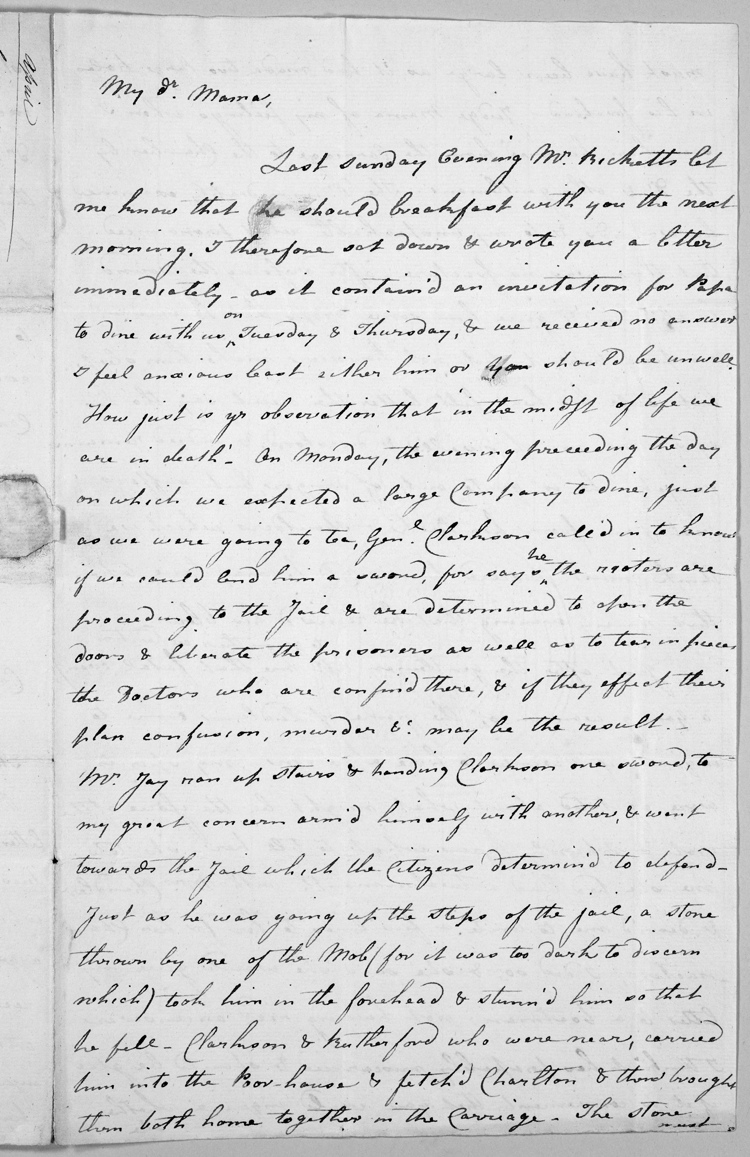 April
My dr. Mama,
Last sunday Evening Mr. Ricketts let
me know that he should breakfast with you the next
morning. I therefore sat down & wrote you a letter
immediately - as it contain'd an invitation for Papa
to dine with us on Tuesday & Thursday, & we received no answer
I feel anxious least either him or you should be unwell.
How just is yr observation that 'in the midst of life we
are in death' - On Monday, the evening preceeding the day
on which we expected a large Company to dine, just
as we were going to tea, Genl. Clarkson call'd in to know
if we could lend him a sword, for says he the rioters are
proceeding to the Jail & are determined to open the
doors & liberate the prisoners as well as to tear in pieces
the Doctors who are confin'd there, & if they effect their
plan confusion, murder &c. may be the result. -
Mr. Jay ran up stairs & handing Clarkson one sword, to
my great concern arm'd himself with another, & went
towards the Jail which the Citizens determin'd to defend -
Just as he was going up the steps of the jail, a stone
thrown by one of the Mob (for it was too dark to discern
which) took him in the forehead & stunn'd him so that
he fell - Clarkson & Rutherford who were near, carried
him into the Poor-house & fetch'd Charlton & then brought
them both home together in the Carriage - The stone
must